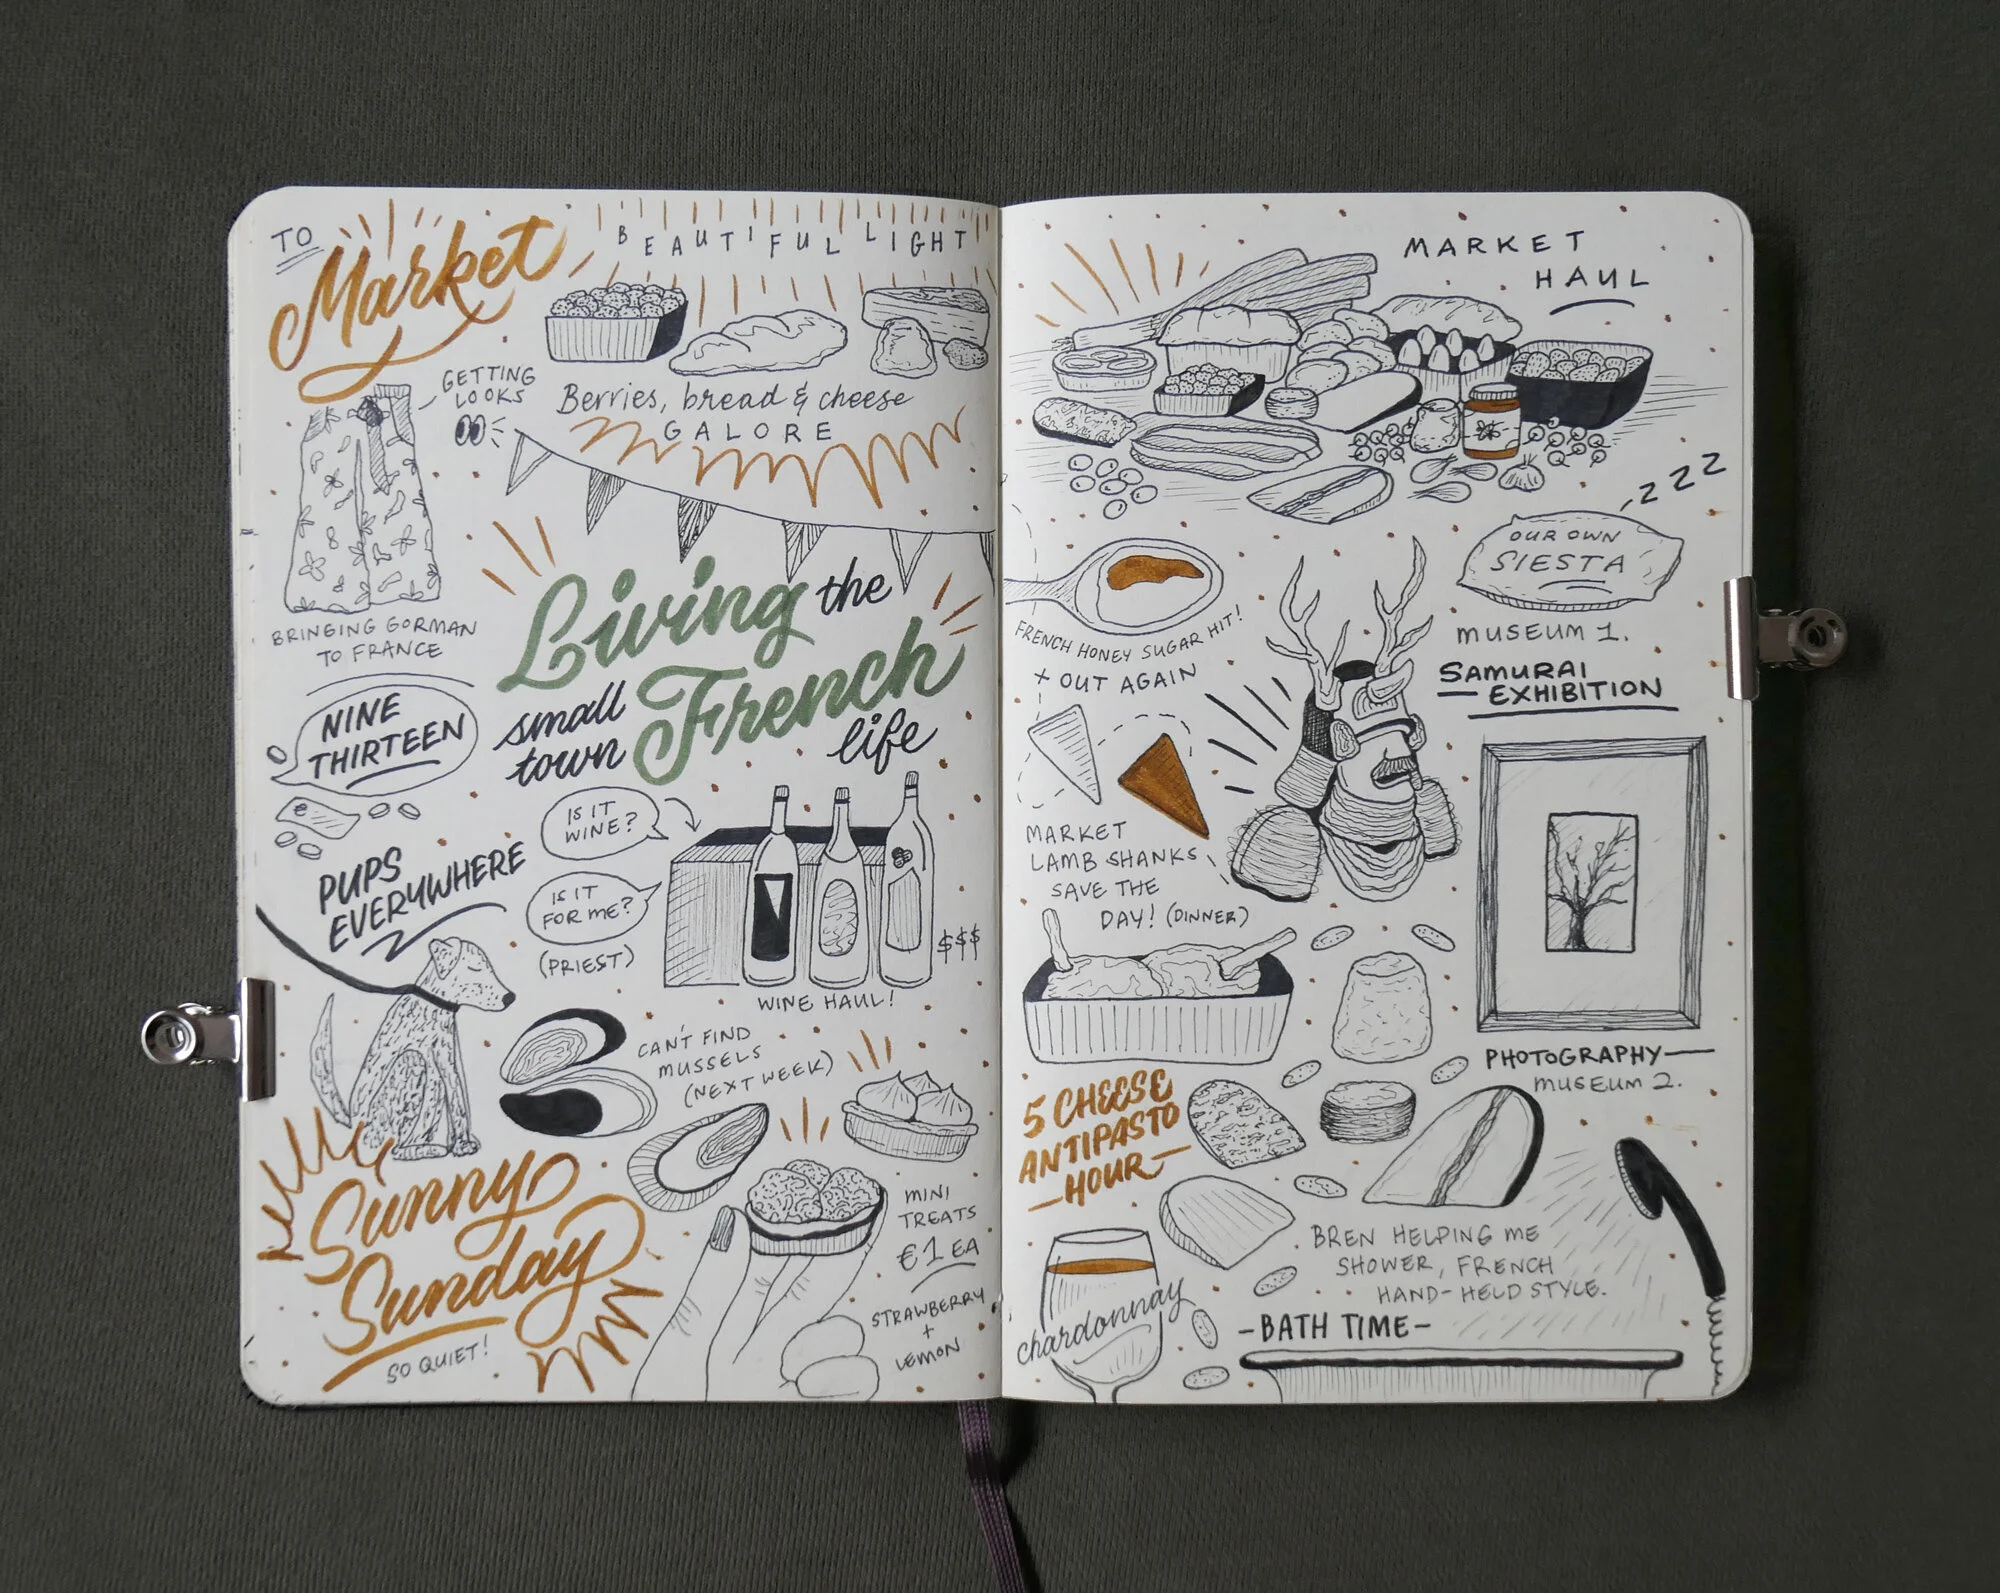 TO
Market
BEAUTIFUL LIGHT
GETTING
LOOKS
Berries, bread & cheese
GALORE
BRINGING GORMAN
TO FRANCE
Living the
small French
town life
NINE
THIRTEEN
e
PUPS
EVERYWHERE
IS IT
WINE?
IS IT
FOR ME?
(PRIEST)
$$$
WINE HAUL!
CAN'T FIND
MUSSELS
(NEXT WEEK)
Sunny
Sunday
SO QUIET!
MINI
TREATS
€1 EA
STRAWBERRY
+
LEMON
MARKET
HAUL
ZZZ
OUR OWN
SIESTA
FRENCH HONEY SUGAR HIT!
+ OUT AGAIN
MUSEUM 1.
SAMURAI
EXHIBITION
MARKET
LAMB SHANKS
SAVE THE
DAY! (DINNER)
PHOTOGRAPHY—
MUSEUM 2.
5 CHEESE
ANTIPASTO
—HOUR—
BREN HELPING ME
SHOWER, FRENCH
HAND-HELD STYLE.
chardonnay
-BATH TIME-